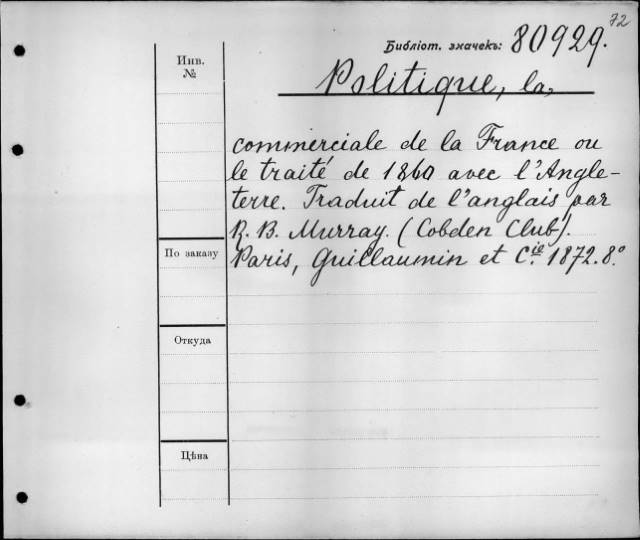 72
Библіот. значекъ: 80929.
Инв.
№
Politique, la,
commerciale de la France ou
le traité de 1860 avec l'Angle-
terre. Traduit de l'anglais par
R. B. Murray. (Cobden Club).
По заказу
Paris, Guillaumin et Cie. 1872. 8.°
Откуда
Цѣна